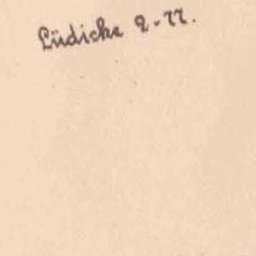 Lüdicke 2-77.